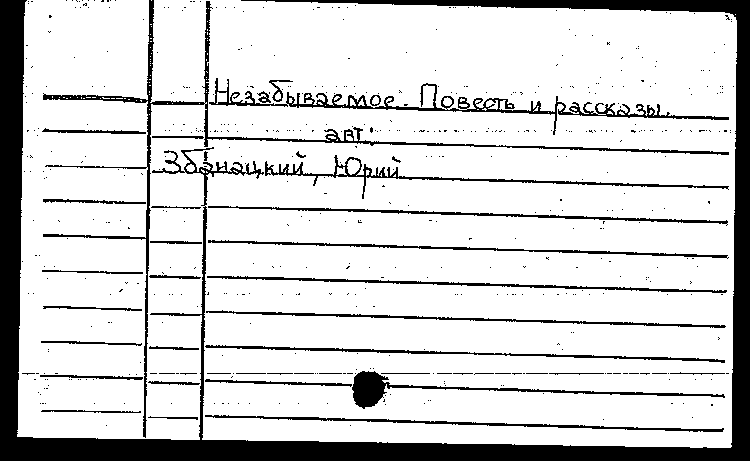 Незабываемое. Повесть и рассказы.
авт:
Збанацкий, Юрий